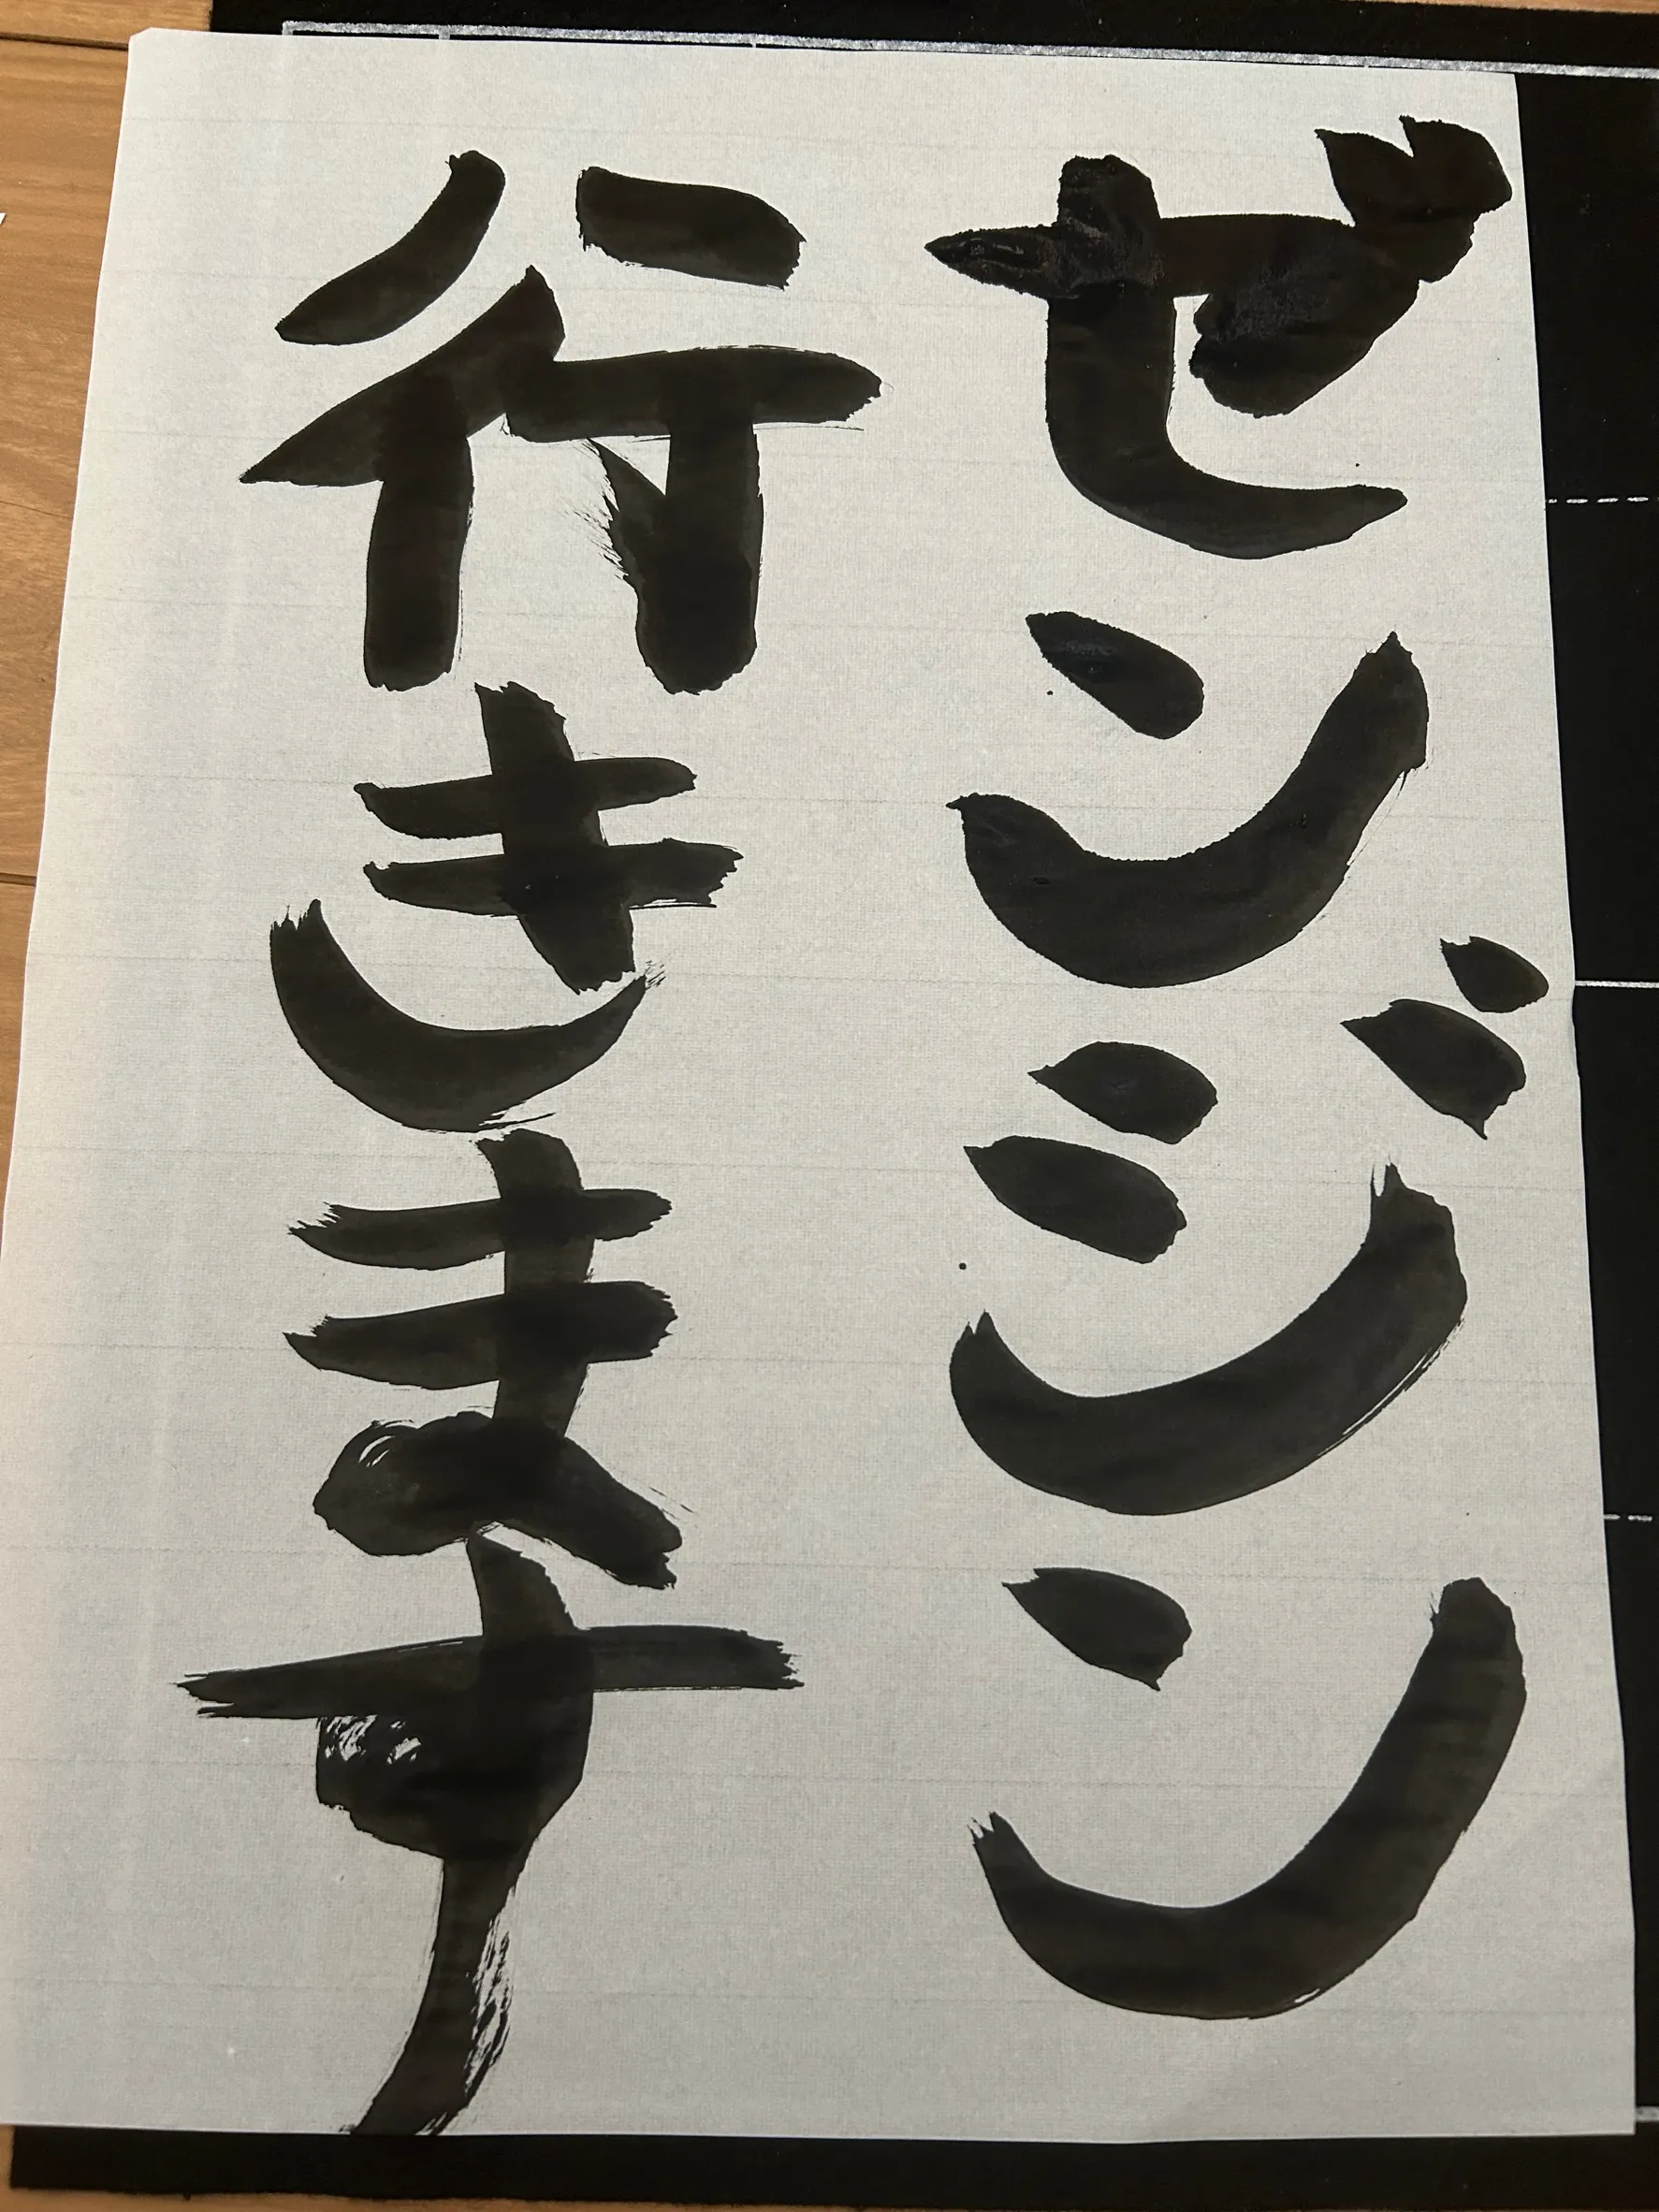 ゼンジン
行きます